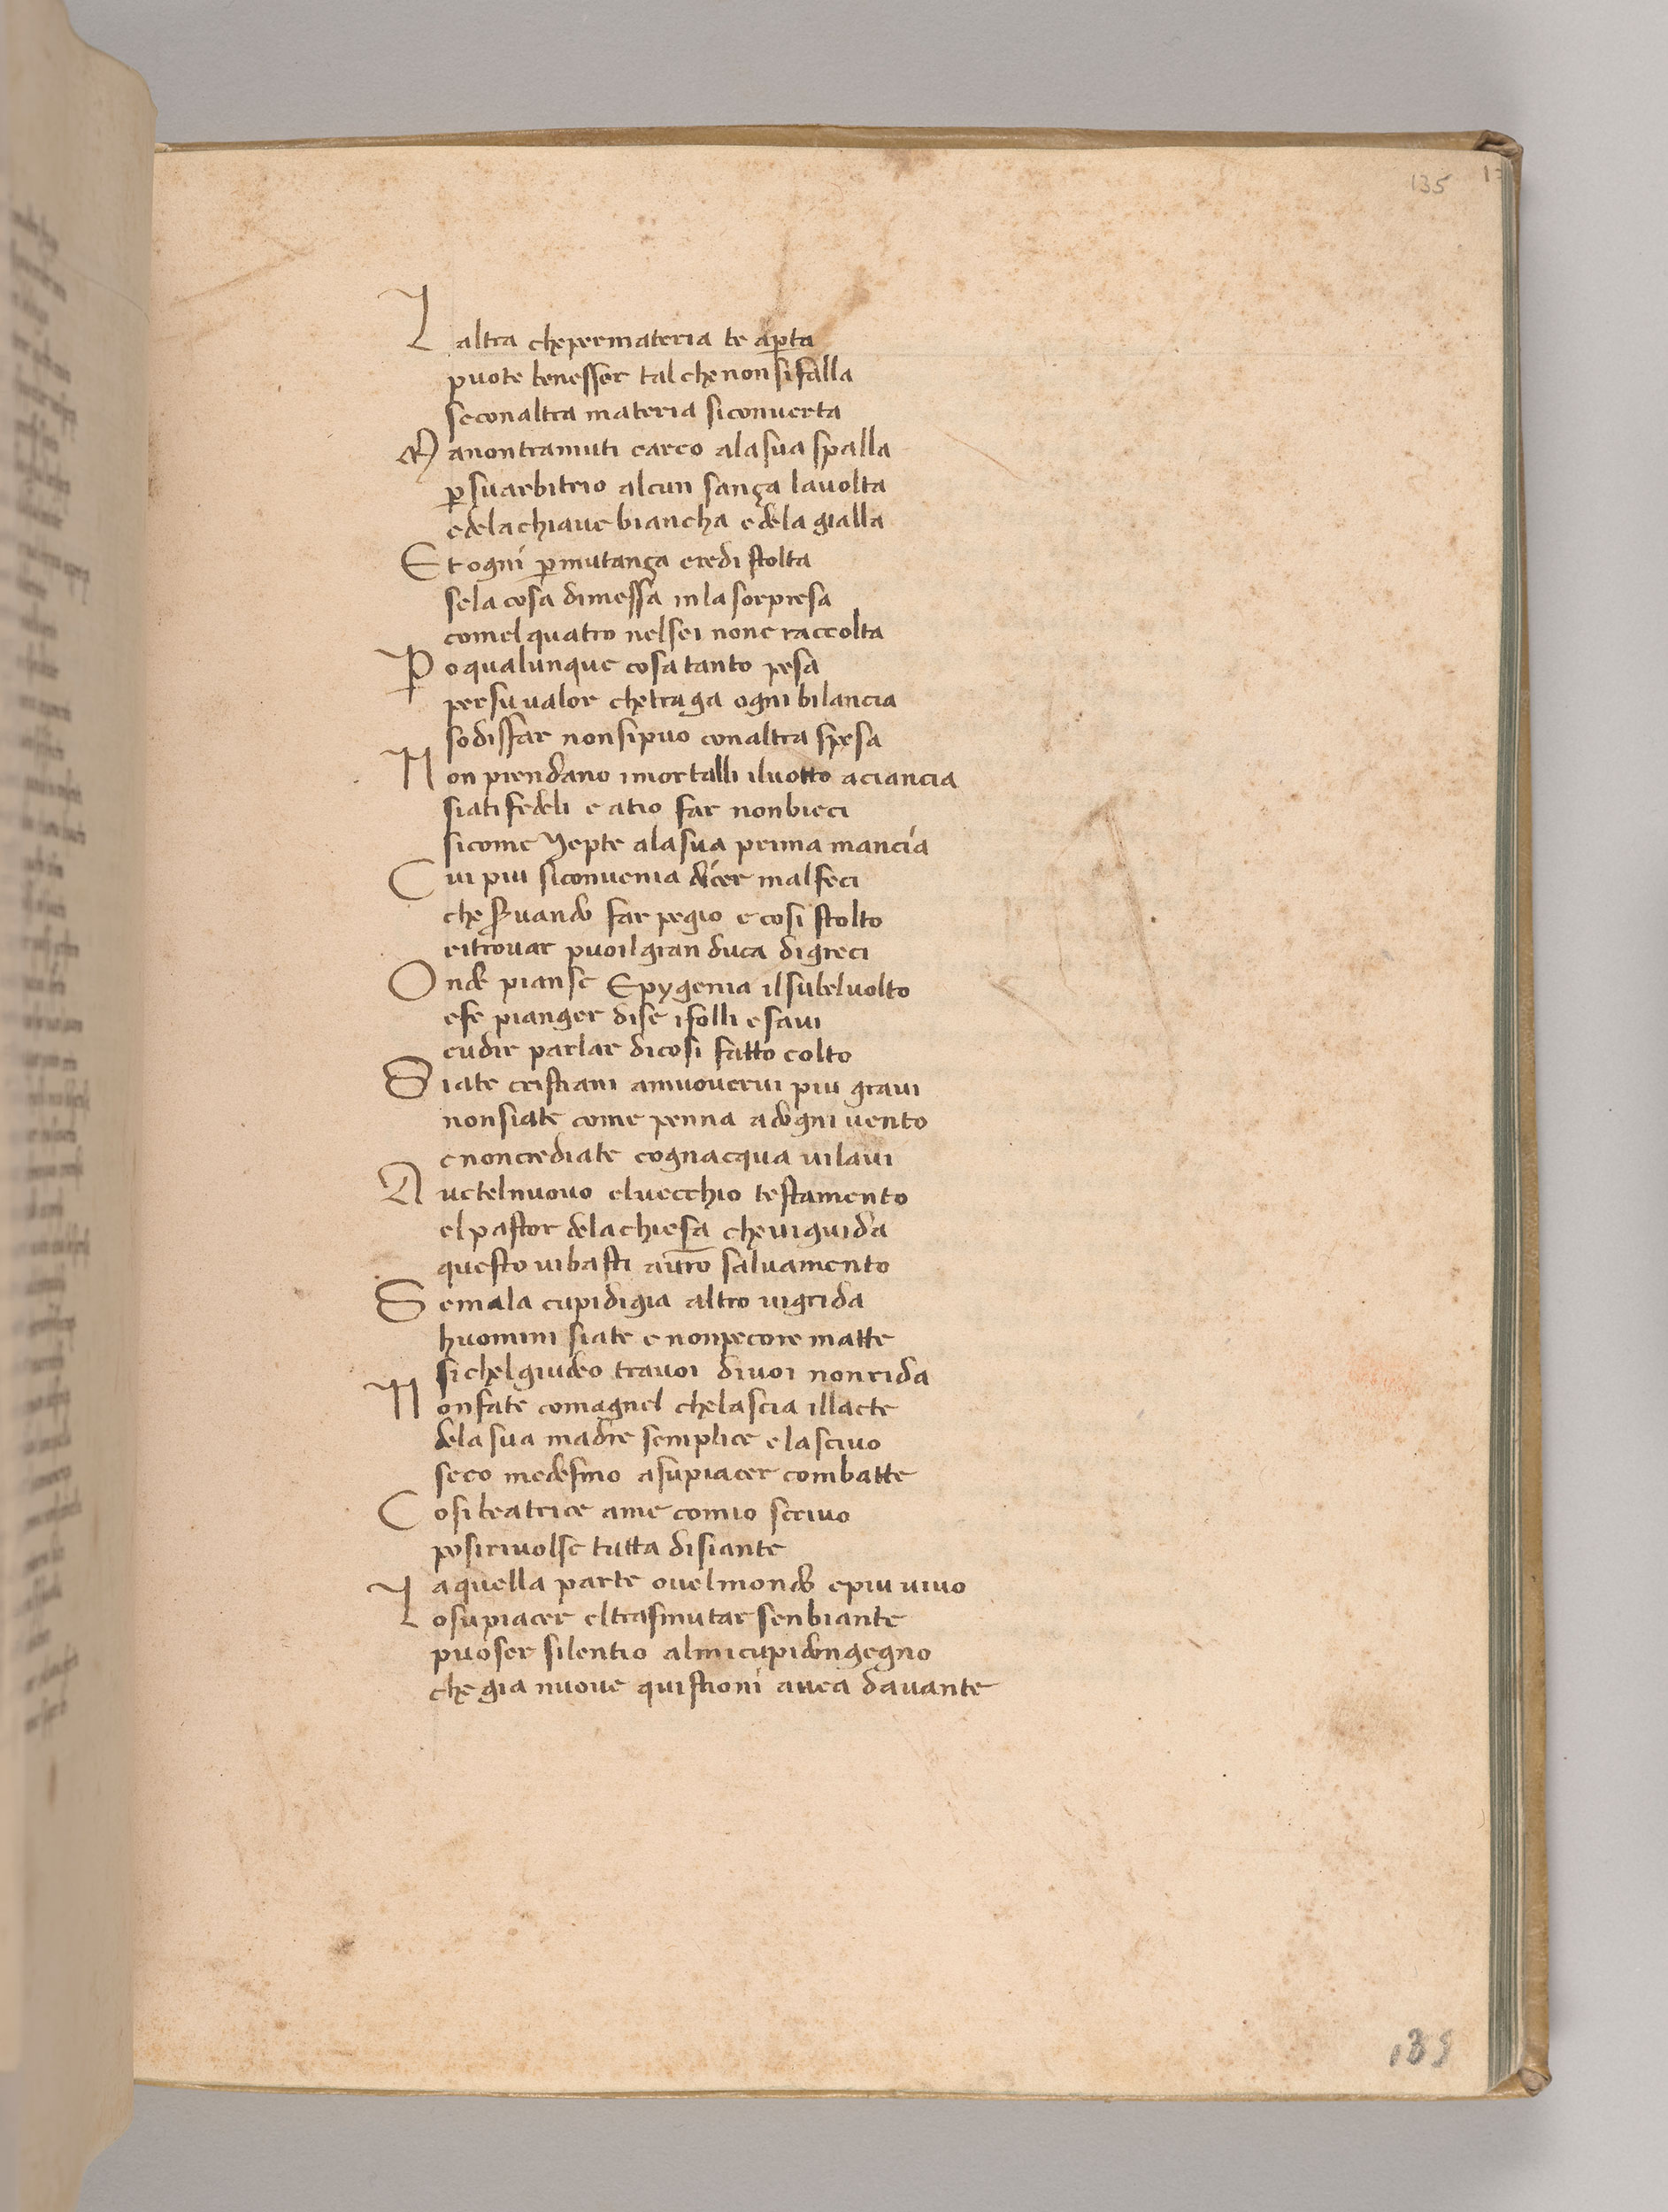 135
L altra che per materia te aperta
puote benesser tal che non si falla
se con altra materia si conuerta
M a non tramuti carco ala sua spalla
per su arbitrio alcun sança la uolta
e dela chiaue biancha e dela gialla
E t ogni permutança credi stolta
se la cosa dimessa in la sorpresa
comel quatro nel sei none raccolta
P o qualunque cosa tanto pesa
per su ualor che traga ogni bilancia
sodisfar non si puo con altra spesa
N on prendano i mortalli il uotto a ciancia
siati fedeli e a tio far non bieci
si come Yepte ala sua prima mancia
C ui piu si conuenia dicer mal feci
che seruando far pegio e cosi stolto
ritrouar puoi il gran duca di greci
O nde pianse Epygenia il su bel uolto
e fe pianger di se i folli e saui
cudir parlar di cosi fatto colto
S iate cristiani a muouerui piu graui
non siate come penna ad ogni uento
e non crediate cognacqua ui laui
A uetel nuouo el uecchio testamento
el pastor dela chiesa che ui guida
questo ui basti a uostro saluamento
S e mala cupidigia altro ui grida
huomini siate e non pecore matte
si chel giudeo tra uoi di uoi non rida
N on fate comagnel che lascia il lacte
dela sua madre semplice e lasciuo
seco medesmo a su piacer combatte
C osi beatrice a me comio scriuo
po si riuolse tutta disiante
a quella parte ouel mondo e piu uiuo
L o su piacer el trasmutar senbiante
puoser silentio al mi cupido ngegno
che gia nuoue quistioni auea dauante
139